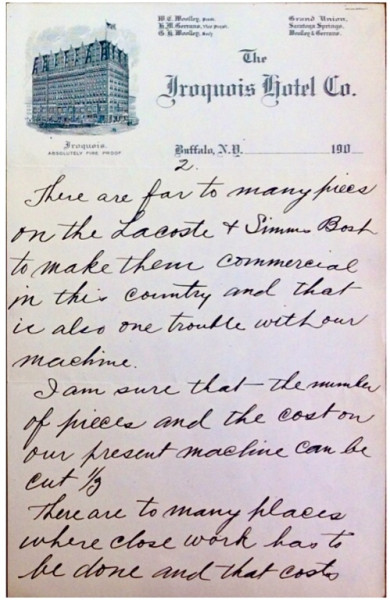 W. E. Woolley, Prest.
H. M. Gerrans, Vice Prest.
G. H. Woolley, Sec'y
Grand Union,
Saratoga Springs,
Woolley & Gerrans.
The
Iroquois Hotel Co.
Iroquois.
ABSOLUTELY FIRE PROOF
Buffalo, N.Y. 190
2.
There are far to many pieces
on the Lacoste & Simms Bosh
to make them commercial
in this country and that
is also one trouble with our
machine.
I am sure that the number
of pieces and the cost on
our present machine can be
cut 1/3
There are to many places
where close work has to
be done and that costs